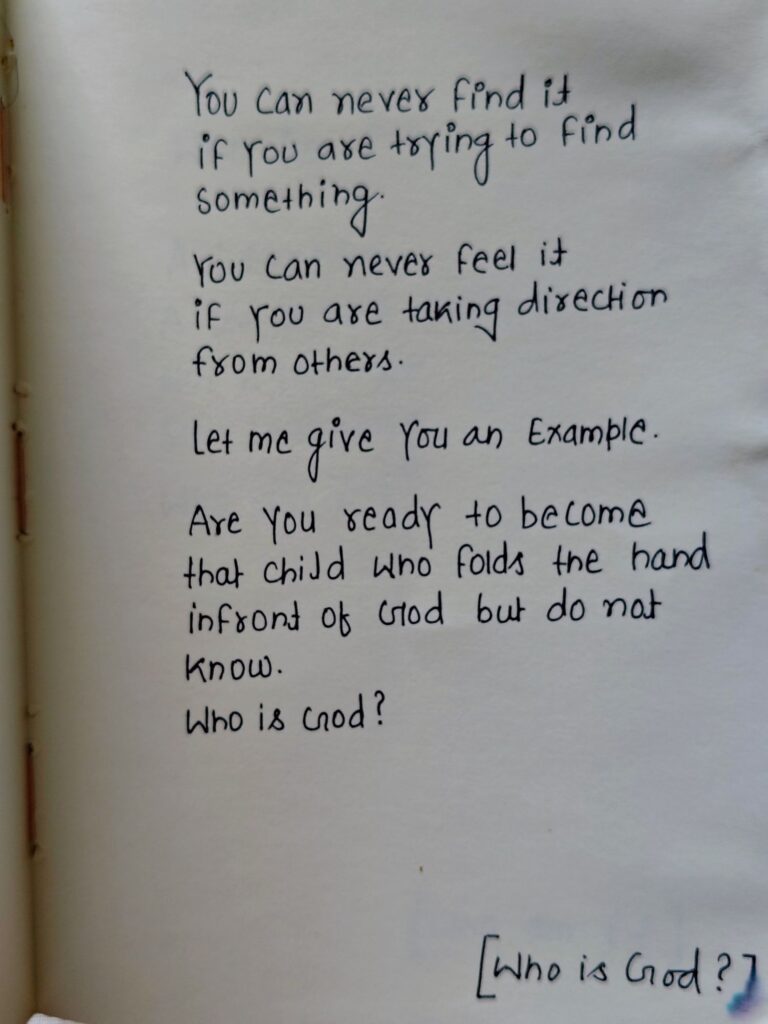 You can never find it
if you are trying to find
something.
You can never feel it
if you are taking direction
from others.
Let me give you an Example.
Are you ready to become
that child who folds the hand
infront of God but do not
know.
Who is God?
[Who is God?]